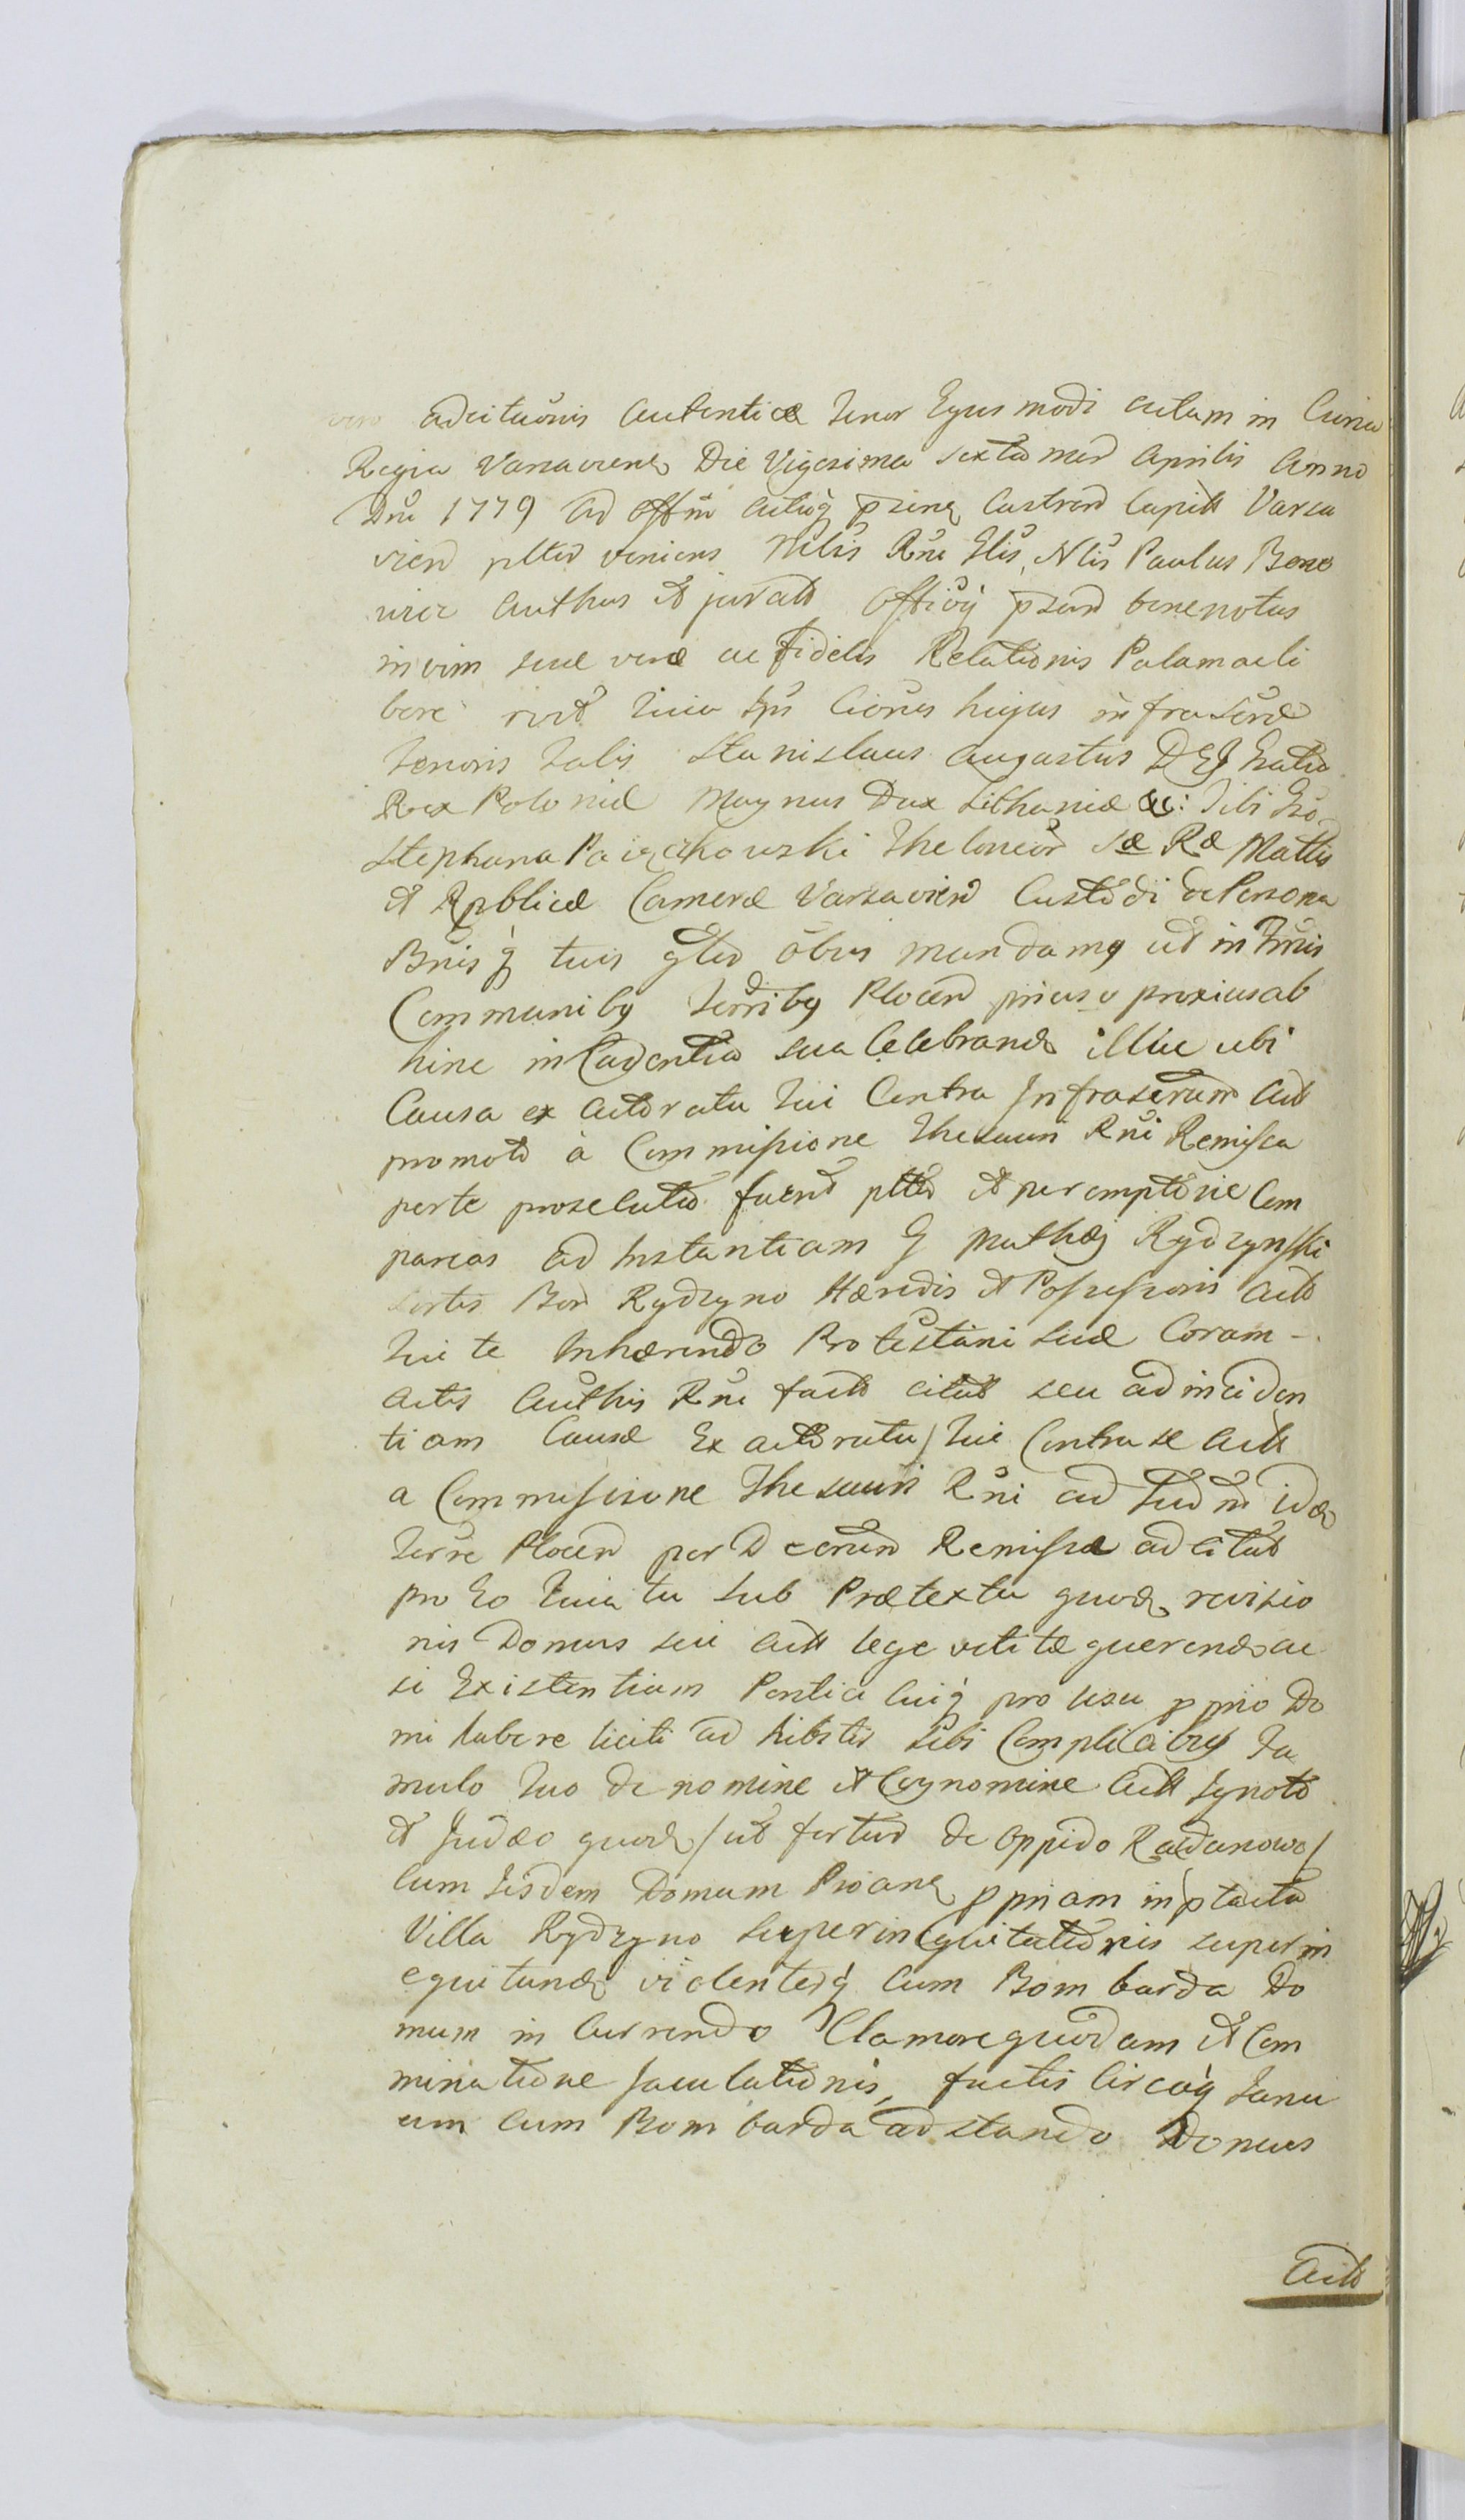 vero adcitaõnis Autenticæ tenor Ejusmodi Actum in Curia
Regia Varsaviens Die Vigesima sexta mens Aprilis Anno
Dni 1779 Ad Offm Actaq̃ pseng Castren Capitt Varsa
vien pltr veniens Mtris Rni Glis, Ntis Paulus Bene
vier Authus et jurats Officÿ psend bene notus
in vim suæ veræ ac fidelis Relationis Palam ac li
bere rect tenor Citõnis hujus infrascrõ
tenoris talis Stanislaus Augustus DEJ Gratia
Rex Poloniæ Magnus Dux Lithaniæ &c: Tibi Gso
Stephano Theloneor Sæ Ræ Mattis
et Rpblicæ Cameræ Varsavien Custodi de Persona
Bnisq̃ tuis gltr õbus mandamg ut in Tmis
Communibg Terribg Plocen primo proxius ab
hinc in Cadentia sua Celebrand illuc ubi
Causa ex Actoratu tui Contra Infrascrum Act
promota à Commissione Thesauri Rni Remissa
perte prosecuta fuerit pltr et peremptorie Com
pareas ad Instantiam G Mathæj Rydzynski
sortis Bon Rydzyno Hæredis et Possessoris Act
Qui te Inhærendo Protestãni suæ Coram -
Actis Authis Rni fact citat seu ad inciden
tiam Causæ Ex actoratu tui Contra se Act
a Commissione Thesauri Rni ad Judm idæ
Terre Plocen per Decretum Remissæ adcitat
pro Eo quia tu sub Prætextu quod revisio
nis Domus sui Act lege vetitæ querend ac
si Existentiam Pontici cuiq̃ pro usu pprio Do
mi habere liciti ad hibitis sibi Complicibus Fa
mulo tuo de nomine et Cognomine Act Ignoto
et Judæo quod /ut fertur de Oppido Radanowo/
Cum Iisdem Domum Proang ppriam in ptacta
Villa Rydzyno superinequitationis superin
equitand violenterq̃ Cum Bombarda Do
mum in Currendo Clamore quodam et Com
minatione Jaculationis, factis Circaq̃ Janu
am Cum Bombarda adstando Domus
Act